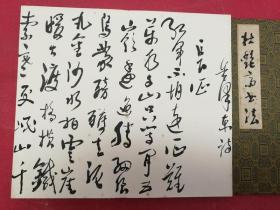 毛澤東詩
長征
紅軍不怕遠征難
萬水千山只等閒五
嶺逶迤騰細浪
烏蒙磅礴走泥
丸金沙水拍雲崖
暖大渡橋橫鐵
索寒更喜岷山千